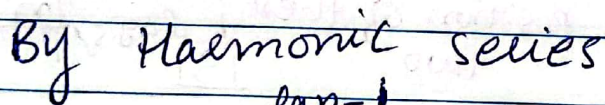 By Harmonic series